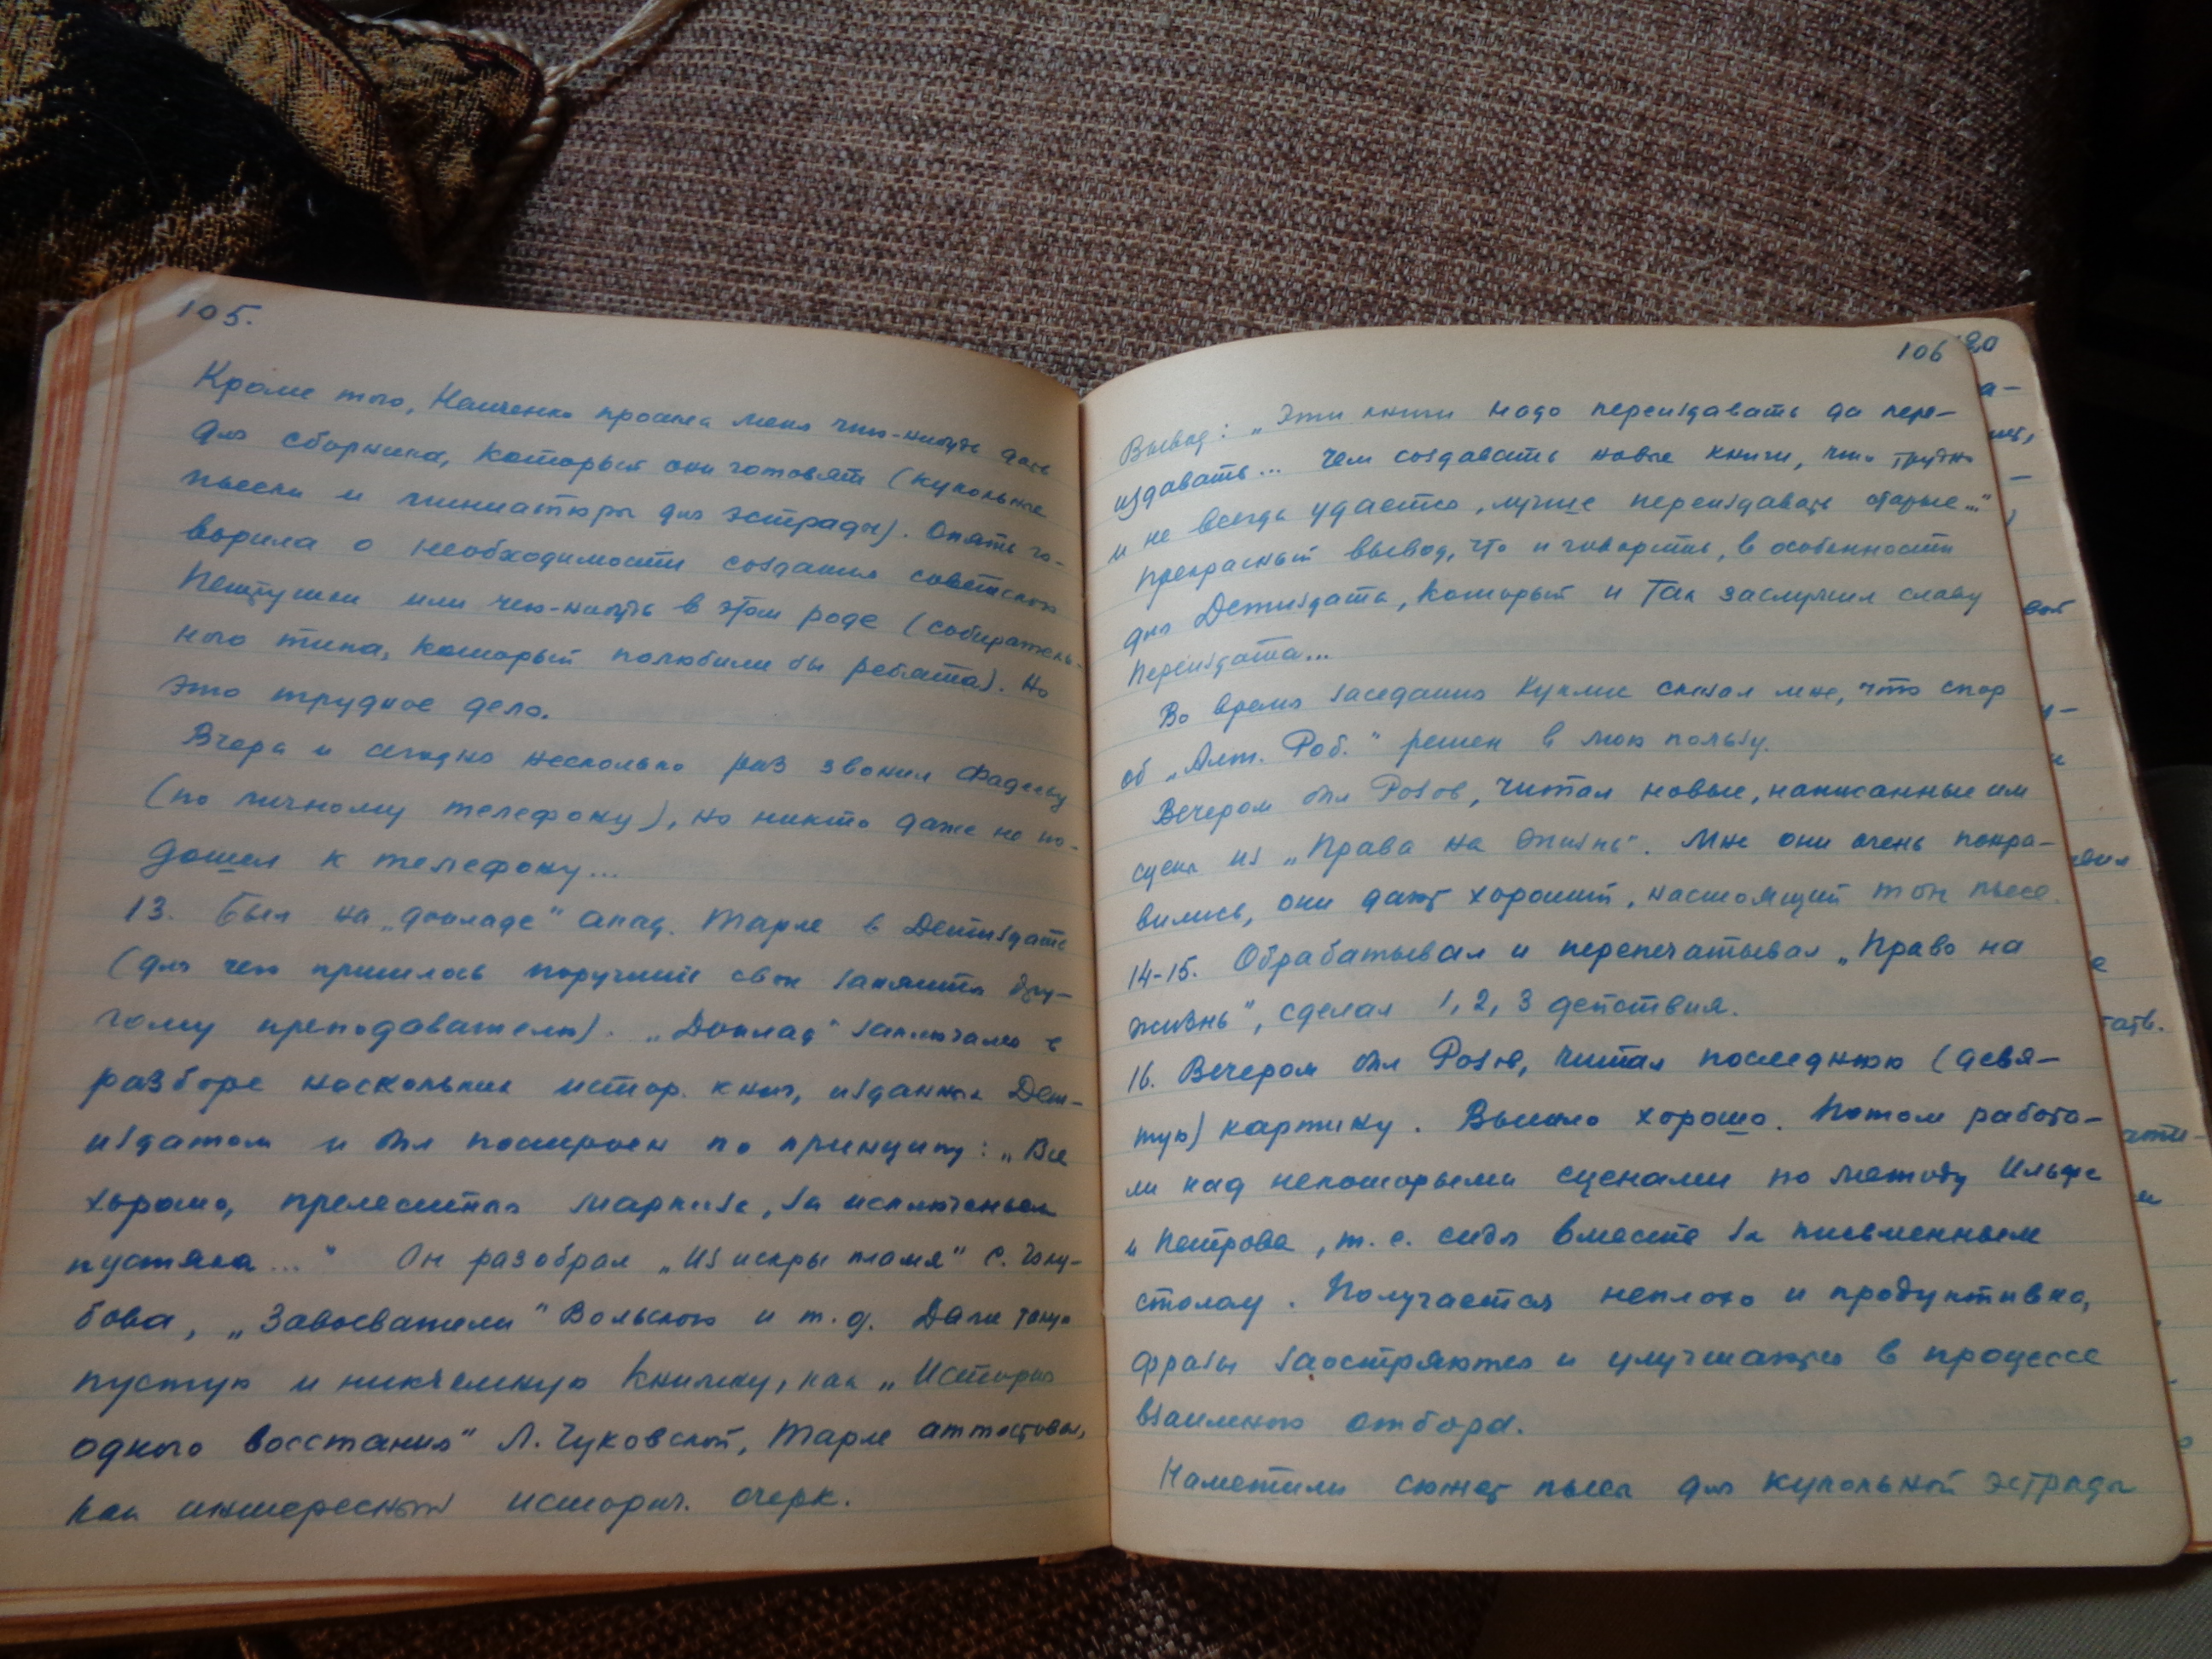 105.
Кроме того, просила меня что-нибудь дать
для сборника, который они готовят (кукольные
пьески и миниатюры для эстрады). Опять го-
ворила о необходимости создания советского
Петрушки или чего-нибудь в этом роде (собиратель-
ного типа, который полюбили бы ребята). Но
это трудное дело.
Вчера и сегодня несколько раз звонил Фадееву
(по личному телефону), но никто даже не по-
дошел к телефону...
13. Был на „докладе" акад. Тарле в Детиздате
(для чего пришлось поручить свои занятия дру-
гому преподавателю). „Доклад" заключался в
разборе нескольких истор. книг, изданных Дет-
издатом и был построен по принципу: „Все
хорошо, прелестная маркиза, за исключеньем
пустяка..." Он разобрал „Из искры пламя" С. Голу-
бова, „Завоеватели" Вольского и т. д. Даже такую
пустую и никчемную книжку, как „История
одного восстания" Л. Чуковской, Тарле аттестовал,
как интересный историч. очерк.
106
Вывод: „Эти книги надо переиздавать да пере-
издавать... Чем создавать новые книги, что трудно
и не всегда удается, лучше переиздавать старые..."
Прекрасный вывод, что и говорить, в особенности
для Детиздата, который и так заслужил славу
Переиздата...
Во время заседания Куклис сказал мне, что спор
об „Алт. Роб." решен в мою пользу.
Вечером был Розов, читал новые, написанные им
сцены из „Права на жизнь". Мне они очень понра-
вились, они дают хороший, настоящий тон пьесе.
14-15. Обрабатывал и перепечатывал „Право на
жизнь", сделал 1, 2, 3 действия.
16. Вечером был Розов, читал последнюю (девя-
тую) картину. Вышло хорошо. Потом работа-
ли над некоторыми сценами по методу Ильфа
и Петрова, т. е. сидя вместе за письменным
столом. Получается неплохо и продуктивно,
фразы заостряются и улучшаются в процессе
взаимного отбора.
Наметили сюжет пьесы для кукольной эстрады